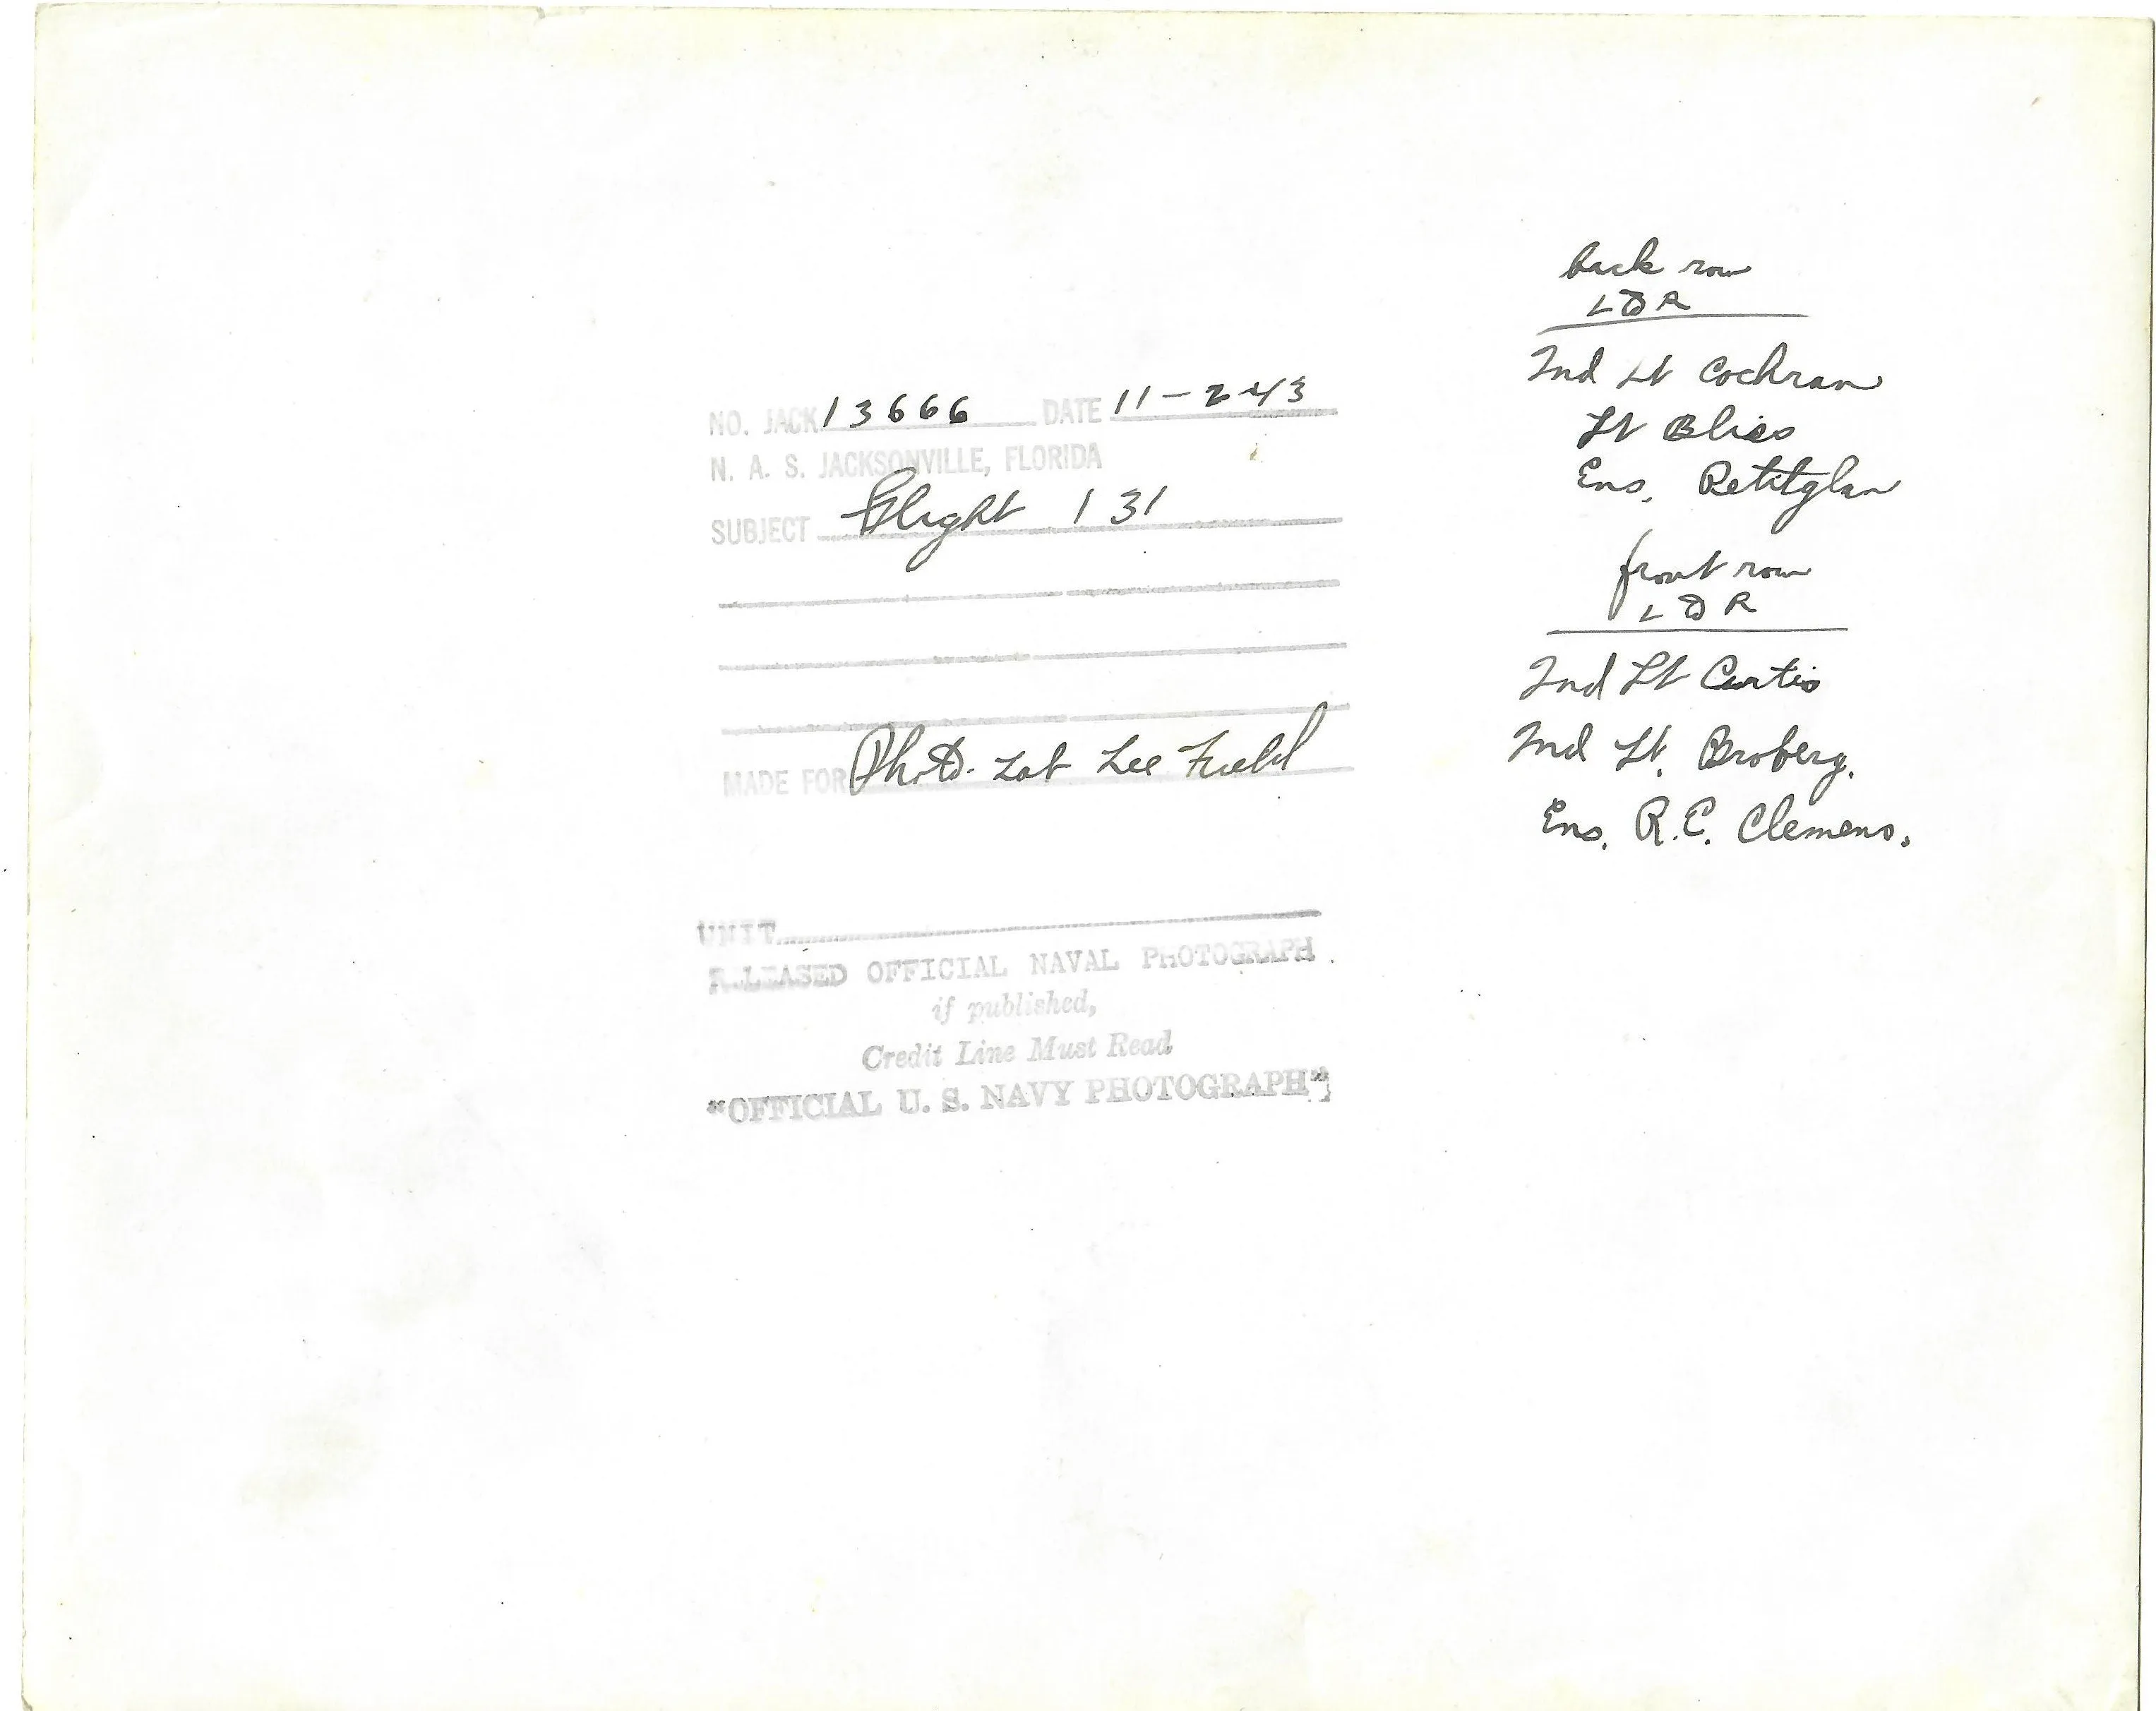 NO. JACK 13666 DATE 11-2-43
N. A. S. JACKSONVILLE, FLORIDA
SUBJECT Flight 131
MADE FOR Photo. Lab Lee Field
UNIT
RELEASED OFFICIAL NAVAL PHOTOGRAPH
if published,
Credit Line Must Read
"OFFICIAL U. S. NAVY PHOTOGRAPH"
back row
L to R
2nd Lt Cochran
Lt Bliss
Ens.
front row
L to R
2nd Lt Curtis
2nd Lt. Broberg.
Ens. R.C. Clemens.